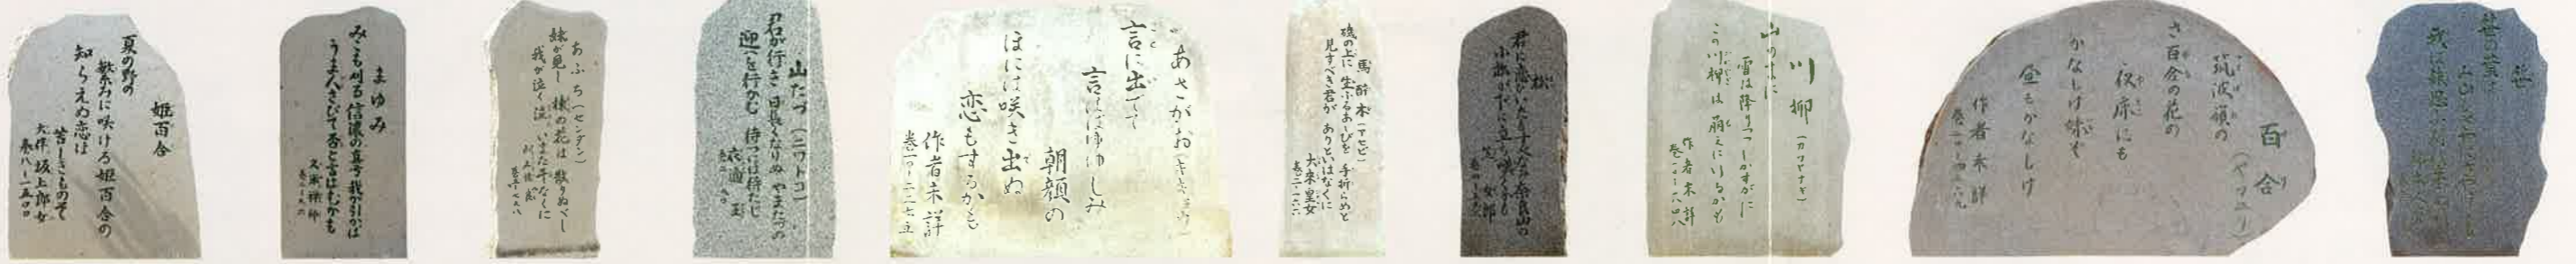 姫百合
夏の野の
繁みに咲ける姫百合の
知らえぬ恋は
苦しきものそ
大伴坂上郎女
巻八ー一五〇〇
まゆみ
みこも刈る信濃の真弓我が引かば
うま人さびて否と言はむかも
久米禅師
あふち(センダン)
妹が見し楝の花は散りぬべし
我が泣く涙いまだ干なくに
山たづ(ニワトコ)
君が行き日長くなりぬやまたづの
迎へを行かむ待つには待たじ
衣通王
あさがお
言に出でて
言はばゆゆしみ
朝顔の
ほには咲き出ぬ
恋もするかも
作者未詳
巻一〇ー二二七五
馬酔木(アセビ)
磯の上に生ふるあしびを手折らめど
見すべき君がありといはなくに
大来皇女
巻二ー一六六
松
君に恋ひいたもすべなみ奈良山の
小松が下に立ち嘆くかも
笠女郎
川柳(カワヤナギ)
山のまに
雪は降りつつしかすがに
この川楊は萌えにけるかも
作者未詳
巻一〇ー一八四八
百合(ヤマユリ)
筑波嶺の
さ百合の花の
夜床にも
かなしけ妹ぞ
昼もかなしけ
作者未詳
笹
笹の葉は
み山もさやにさやげども
我は妹思ふ